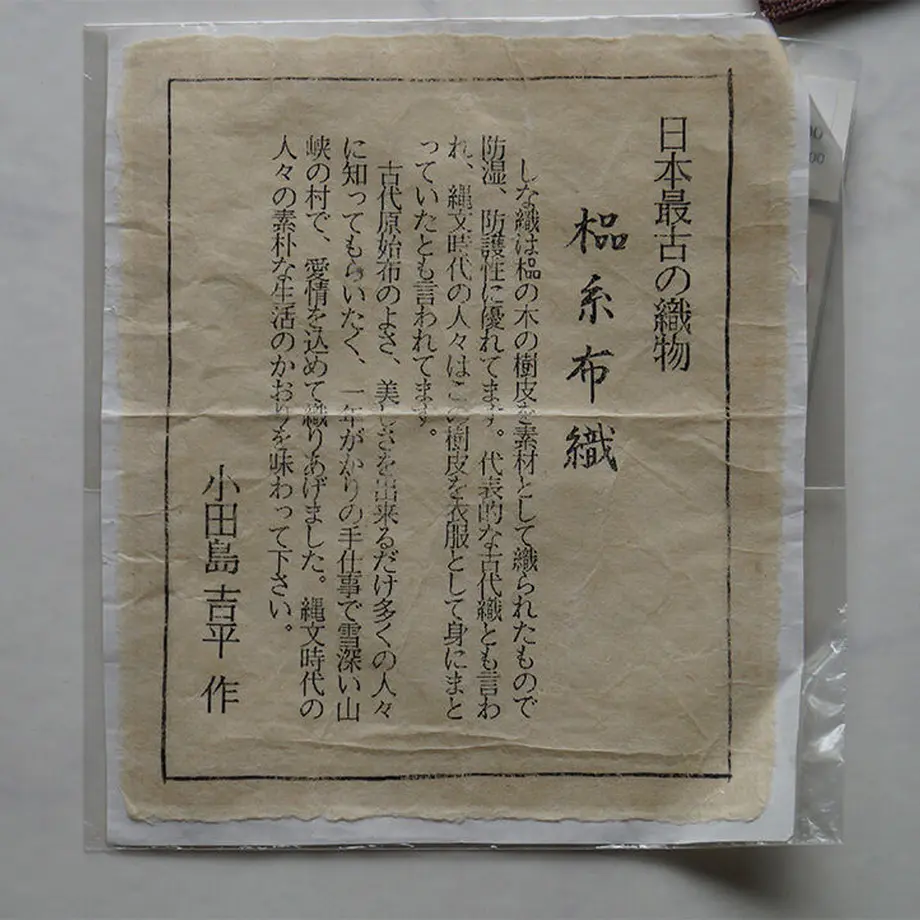 日本最古の織物
榀糸布織
しな織は榀の木の樹皮を素材として織られたもので
防湿、防護性に優れてます。代表的な古代織とも言わ
れ、縄文時代の人々はこの樹皮を衣服として身にまと
っていたとも言われてます。
古代原始布のよさ、美しさを出来るだけ多くの人々
に知ってもらいたく、一年がかりの手仕事で雪深い山
峡の村で、愛情を込めて織りあげました。縄文時代の
人々の素朴な生活のかおりを味わって下さい。
小田島吉平 作